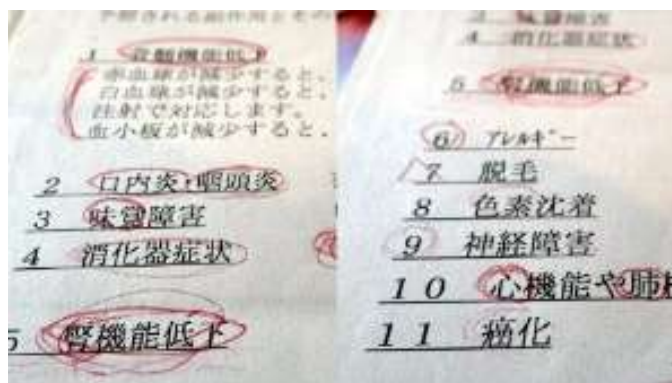 予想される副作用とその
1 骨髄機能低下
赤血球が減少すると、
白血球が減少すると、
注射で対応します。
血小板が減少すると、
2 口内炎・咽頭炎
3 味覚障害
4 消化器症状
5 腎機能低下
3 味覚障害
4 消化器症状
5 腎機能低下
6 アレルギー
7 脱毛
8 色素沈着
9 神経障害
10 心機能や肺機
11 癌化